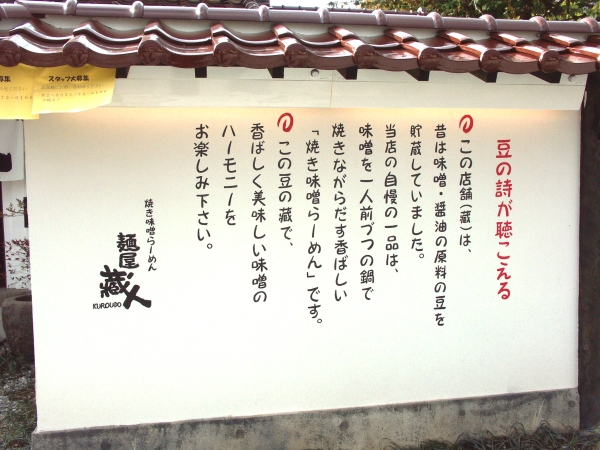 豆の詩が聴こえる
この店舗(蔵)は、
昔は味噌・醤油の原料の豆を
貯蔵していました。
当店の自慢の一品は、
味噌を一人前づつの鍋で
焼きながらだす香ばしい
「焼き味噌らーめん」です。
この豆の蔵で、
香ばしく美味しい味噌の
ハーモニーを
お楽しみ下さい。
焼き味噌らーめん
麺屋
蔵人
KURODUDO
募集
スタッフ大募集